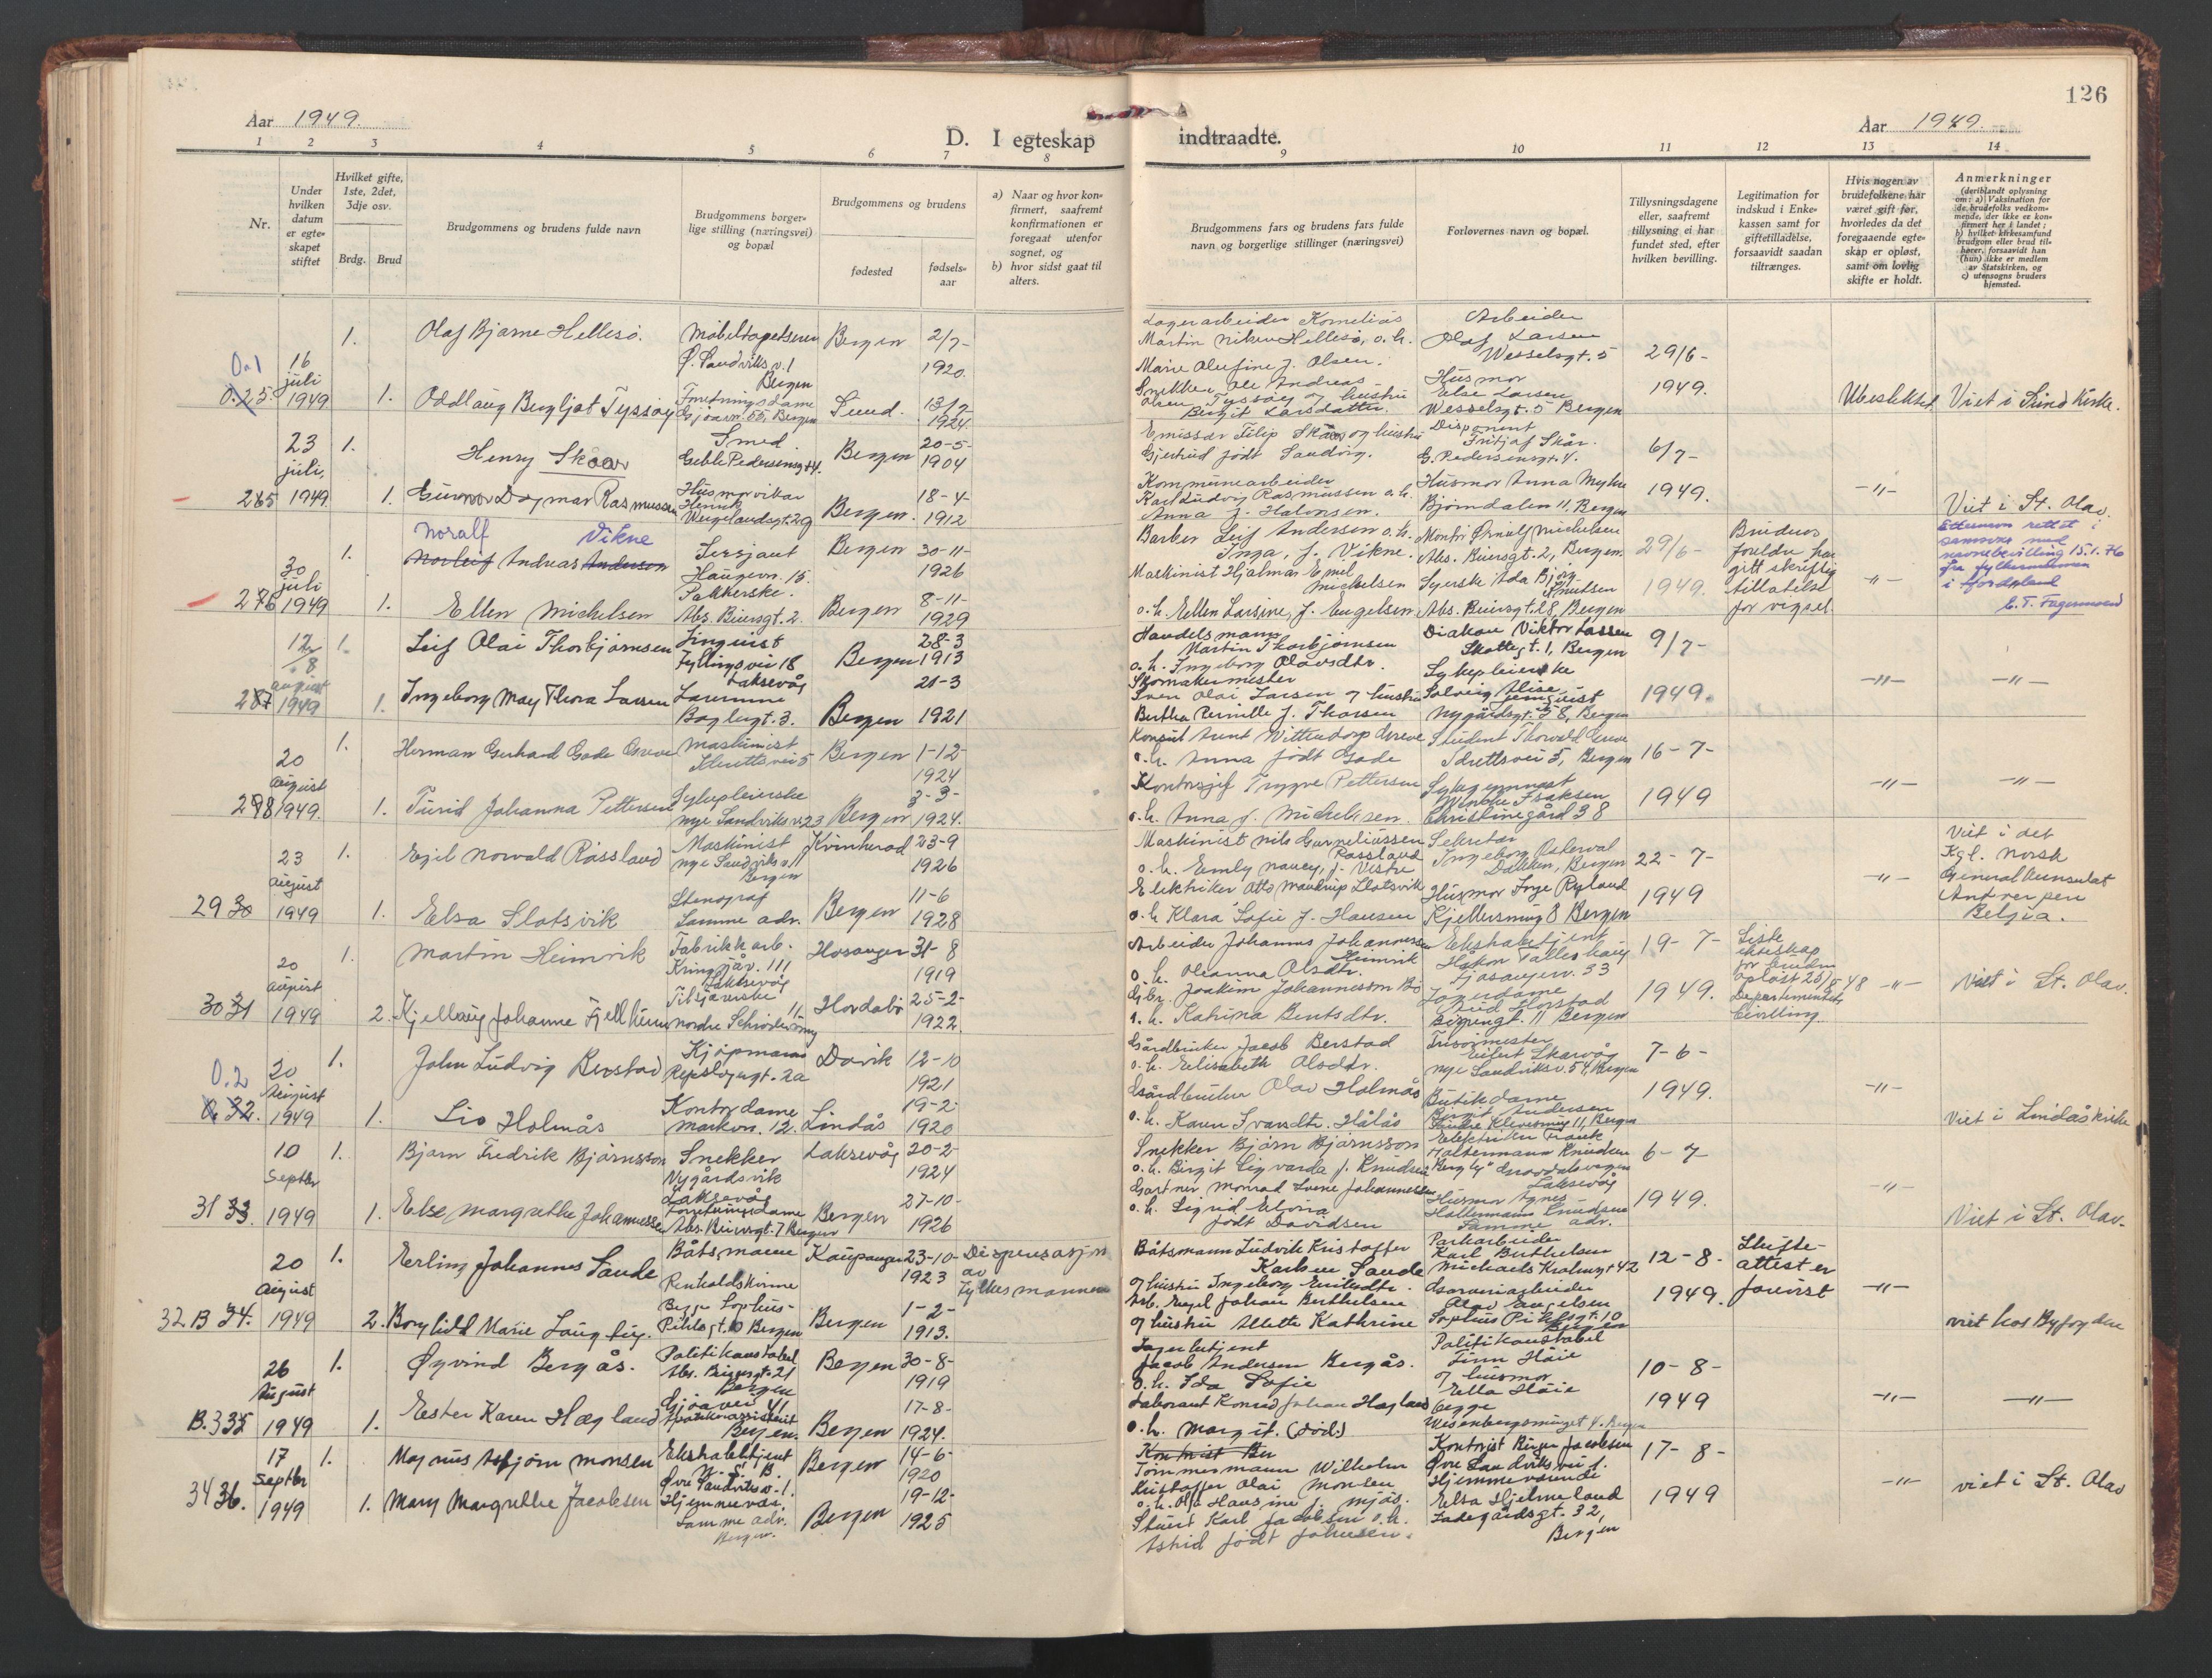 126
Aar 1949.
D. I egteskap indtraadte.
Aar 1949.
1 2 3 4 5 6 7 8 9 10 11 12 13 14
Nr.
Under hvilken datum er egteskapet stiftet
Hvilket gifte, 1ste, 2det, 3dje osv.
Brdg. Brud
Brudgommens og brudens fulde navn
Brudgommens borgerlige stilling (næringsvei) og bopæl
Brudgommens og brudens
fødested
fødselsaar
a) Naar og hvor konfirmert, saafremt konfirmationen er foregaat utenfor sognet, og
b) hvor sidst gaat til alters.
Brudgommens fars og brudens fars fulde navn og borgerlige stillinger (næringsvei)
Forlovernes navn og bopæl.
Tillysningsdagene eller, saafremt tillysning ei har fundet sted, efter hvilken bevilling.
Legitimation for indskud i Enkekassen samt for giftetilladelse, forsaavidt saadan tiltrænges.
Hvis nogen av brudefolkene har været gift før, hvorledes da det foregaaende egteskap er opløst, samt om lovlig skifte er holdt.
Anmerkninger
(deriblandt oplysning om: a) Vaksination for de brudefolks vedkommende, der ikke er konfirmert her i landet; b) hvilket kirkesamfund brudgom eller brud tilhører, forsaavidt han (hun) ikke er medlem av Statskirken, og c) utensogns bruders hjemsted.
0.1
0.25. 16 juli 1949
1. Olaf Bjarne Hellesø. Møbeltapetserer Ø. Sandviksv. 1 Bergen
Bergen 2/7- 1920.
1. Oddlaug Bergljot Tyssøy Forretningsdame Gjøavn. 55, Bergen
Sund. 13/7 1924
Lagerarbeider Kornelius Martin Hellesø, o.h. Marie Olufine f. Olsen.
Snekker Ole Andreas Olsen Tyssøy og hustru Birgit Larsdatter.
Arbeider Olaf Larsen Wesselsgt. 5
Husmor Else Larsen Wesselsgt. 5 Bergen
29/6- 1949.
Ubeslektet
Viet i Sund Kirke.
265 23 juli, 1949.
1. Henry Skaar Smed Geble Pedersensgt 4.
Bergen 20-5- 1904
1. Gunvor Dagmar Rasmussen Husmorvikar Henrik Wergelandsgt. 29
Bergen. 18-4- 1912
Emissær Filip Skaar og hustru Gjertrud født Sandvig.
Kommunearbeider Karl Ludvig Rasmussen o.h. Anna f. Halvorsen.
Disponent Fritjof Skår. G. Pedersensgt. 4.
Husmor Anna Myhre Bjørndalen 11, Bergen
6/7- 1949.
-"-
Viet i St. Olav.
276 30 juli 1949
Noralf Vikne
1. Norleif Andreas Andersen Sersjant Haugevn. 15.
Bergen 30-11- 1926
1. Ellen Michelsen Pakkerske. Abs. Beiersgt. 2.
Bergen 8-11- 1929
Barber Leif Andersen o.h. Inga, f. Vikne.
Maskinist Hjalmar Emil Michelsen o.h. Ellen Larsine, f. Engelsen.
Montør Ørnulf Michelsen Abs. Beiersgt. 2, Bergen.
Syerske Ada Bjørg Knutsen Abs. Beiersgt. 28, Bergen
29/6- 1949.
Brudens foreldre har gitt skriftlig tillatelse for vigsel.
-"-
Etternavn rettet i samsvar med navnebevilling 15.1.76 fra fylkesmannen i Hordaland
E. T. Fagermoen
287 12/8 august 1949
1. Leif Olai Thorbjørnsen Jinguist Fyllingsvei 18 Laksevåg
Bergen 28-3 1913
1. Ingeborg May Thora Larsen Larerinne Baglergt. 3.
Bergen 21-3 1921
Handelsmann Martin Thorbjørnsen o.h. Ingeborg Olavsdtr.
Skomakermester Sven Olai Larsen og hustru Bertha Pernille f. Thorsen
Diakon Viktor Lassen Skottegt. 1, Bergen
Sykepleierske Solveig Alise Nygårdsgt. 78, Bergen
9/7- 1949.
-"- -"-
298 20 august 1949.
1. Herman Gerhard Gade Greve Maskinist Idrettsvei 5
Bergen 1-12- 1924
1. Turid Johanna Pettersen Sykepleierske Nye Sandviksv. 23
Bergen 3-3- 1924.
Konsul Arent Wittendorp Greve o.h. Anna født Gade
Kontorsjef Trygve Pettersen o.h. Anna f. Michelsen.
Student Thorvald Greve Idrettsvei 5, Bergen
Sykegymnast Wenche Isaksen Christinegård 38
16-7- 1949
-"- -"-
29 30 23 august 1949
1. Egil Norvald Røssland Maskinist Nye Sandviksv. 11 Bergen
Kvinherad 23-9 1926
1. Elsa Slotsvik Stenograf Samme adr.
Bergen 11-6 1928
Maskinist Nils Corneliussen Røssland o.h. Emly Nancy, f. Vestre
Elektriker Otto Mandrup Slotsvik o.h. Klara Sofie f. Hansen
Sekretær Ingeborg Østervol Dalken, Bergen
Husmor Inge Ryland Kjellersmug 8 Bergen
22-7- 1949
-"-
Viet i det Kgl. Norsk Generalkonsulat Antwerpen Belgia.
30 31 20 august 1949
1. Martin Heimvik Fabrikkarb. Kringsjåv. 111 Laksevåg
Hosanger 31-8 1919
2. Kjellaug Johanne Fjellheim Tilsjåerske Nordre Skrødersmug 11
Hordabø 25-2- 1922.
Arbeider Johannes Johannessen Heimvik o.h. Olianna Olsdtr.
Gbr. Joakim Johannesson Bø o.h. Katrina Bentsdtr.
Ekskabetjent Håkon Tolleshaug Fjøsangerv. 33
Lagerdame Bispengt. 11 Bergen
19-7- 1949.
Siste ekteskap for bruden opløst 20/8-48 Departementets bevilling.
-"-
Viet i St. Olav.
0.2
0. 32. 20 August 1949
1. John Ludvig Berstad Kjøpmann Repslagergt. 2a
Davik 12-10 1921
1. Liv Holmås Kontordame Markvn. 12.
Lindås 19-2- 1920
Gårdbruker Jacob Berstad o.h. Elisabeth Olsdtr.
Gårdbruker Olav Holmås o.h. Karen Ivarsdtr. Hålås
Frisørmester Eifert Skarvøy Nye Sandviksv. 54, Bergen
Butikdame Birgit Andersen Søndre Klevesmug 11, Bergen
7-6- 1949.
-"-
Viet i Lindås kirke
31 33. 10 Septbr 1949
1. Bjørn Fredrik Bjørnsson Snekker Nygårdsvik Laksevåg
Laksevåg 20-2- 1924
1. Else Margrethe Johannessen Forretningsdame Abs. Beiersgt. 7 Bergen
Bergen 27-10- 1926
Snekker Bjørn Bjørnsson o.h. Birgit Sigvarda f. Knudsen
Gartner Monrad Svene Johannessen o.h. Sigrid Elvira født Davidsen
Elektriker Frank Haltermann Knudsen "Bergly" Gravdalsvegen Laksevåg
Husmor Agnes Haltermann Knudsen Samme adr.
6-7- 1949.
-"-
Viet i St. Olav.
32 B 34. 20 August 1949
1. Erling Johannes Sande Båtsmann
Kaupanger 23-10- 1923
Dispensasjon av Fylkesmannen
2. Borghild Marie Laughlig. Renholdskvinne Begge Sophus Pihlsgt. 10 Bergen
Bergen 1-2- 1913.
Båtsmann Ludvik Kristoffer Karlsen Sande og hustru Ingeborg Emilsdtr.
Arb. Engel Johan Berthelsen og hustru Alette Kathrine
Parkarbeider Karl Berthelsen Michael Krohnsgt 42
Garveriarbeider Olav Engelsen Sophus Pihlsgt. 10 Bergen
12-8- 1949.
Skifteattest er forevist
-"-
viet hos Byfogden
B. 335 26 August 1949
1. Øyvind Bergås. Politikonstabel Abs. Beiersgt. 21 Bergen
Bergen 30-8- 1919
1. Ester Karen Hagland Gjøaven 41 Apotekerassistent Bergen.
Bergen 17-8- 1924.
Lagerbetjent Jacob Andersen Bergås. o.h. Ida Sofie
Laborant Konrad Johan Hagland o.h. Margit. (død.)
Politikonstabel Finn Høie og husmor Ella Høie begge Wesenbergsmuget 4. Bergen
10-8- 1949
-"- -"-
34 36. 17 Septbr 1949
1. Magnus Asbjørn Monsen Ekskabetjent N.S.B. Øvre Sandviksv. 1.
Bergen 14-6- 1920
1. Mary Margrethe Jacobsen Hjemmevær. Samme adr. Bergen.
Bergen 19-12- 1925
Kontorist Ber
Tømmermann Wilhelm Kristoffer Olai Monsen o.h. Olga Hansine f. Mjøs.
Stuert Karl Jacobsen o.h. Astrid født Johnsen.
Kontorist Birger Jacobsen Øvre Sandviksvei 1.
Hjemmeværende Elsa Hjelmeland Ladegårdsgt. 32, Bergen
17-8- 1949
-"-
viet i St. Olav